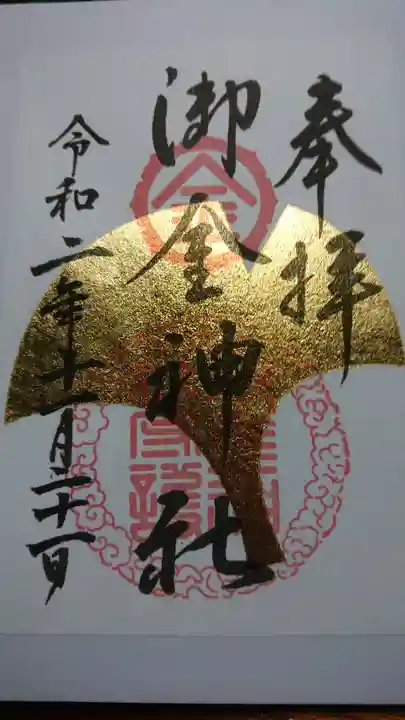 奉拝
御金神社
令和二年十一月二十一日